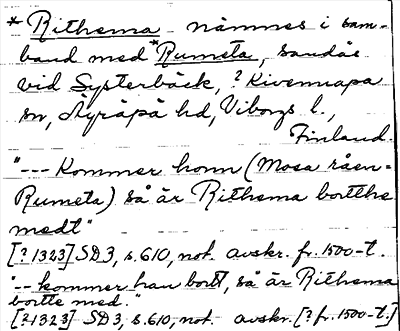 *Rithema nämnes i sam-
band med *Rumeta, sandås
vid Systerbäck, ? Kivennapa
sn, Äyräpä hd, Viborgs l.,
Finland.
"--- Kommer honn (Mosa råen-
Rumeta) så är Rithema bortthe
medt"
[?1323] SD3, s. 610, not. avskr. fr. 1500-t.
"-- kommer han bort, så är Rithema
bortte med."
[?1323] SD3, s. 610, not. avskr. [? fr. 1500-t.]